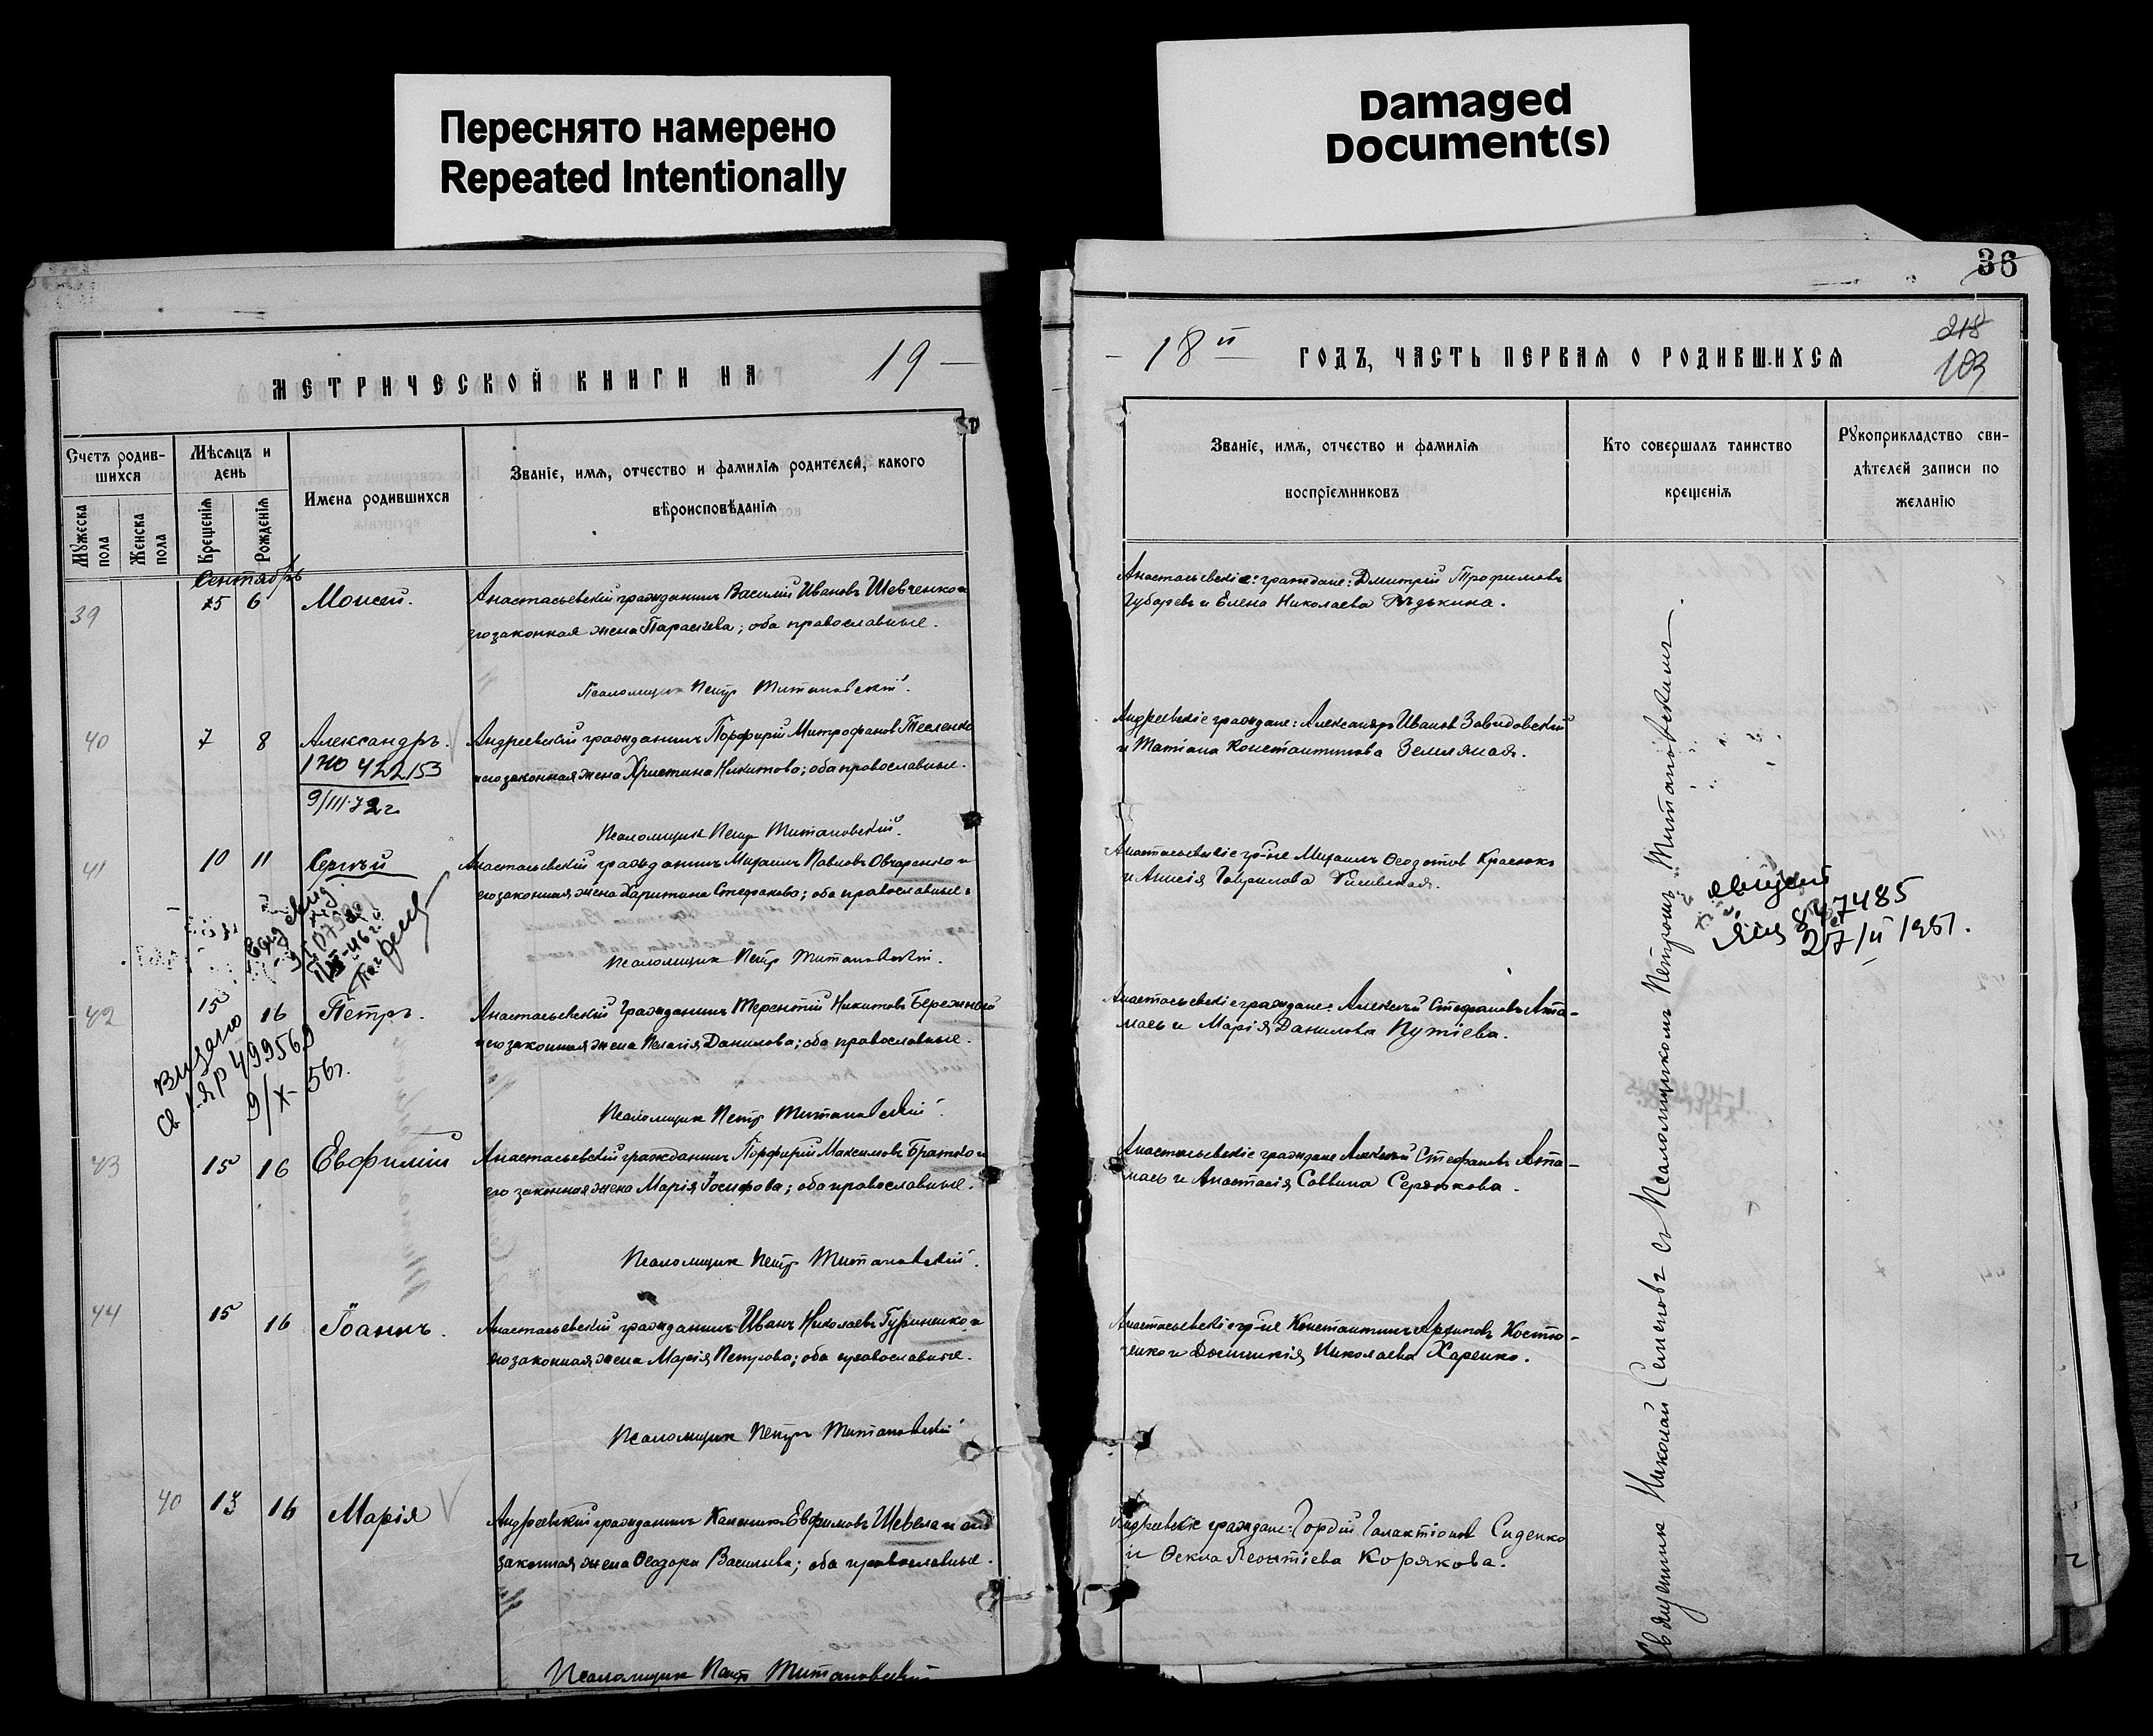 Переснято намерено
Repeated Intentionally
Damaged
Document(s)
36
МЕТРИЧЕСКОЙ КНИГИ НА 19 —
— 18 й ГОДЪ, ЧАСТЬ ПЕРВАЯ О РОДИВШИХСЯ
218
103
Счетъ родив-
шихся
Мужеска
пола
Женска
пола
Мѣсяцъ и
день
Крещенія
Рожденія
Имена родившихся
Званіе, имя, отчество и фамилія родителей, какого
вѣроисповѣданія
Званіе, имя, отчество и фамилія
воспріемниковъ
Кто совершалъ таинство
крещенія
Рукоприкладство сви-
дѣтелей записи по
желанію
Сентябрь
39
6
Моисей.
Анастасьевскій гражданинъ Василій Ивановъ Шевченко и
его законная жена Параскева; оба православные.
Псаломщик Петр Титановскій.
Анастасьевскіе: граждане: Дмитрій Трофимовъ
Губаревъ и Елена Николаева Рѣдькина.
40
7
8
Александръ.
1 Ю 422153
9/III-72г
Андреевскій гражданинъ Порфирій Митрофанов Тесленко
и его законная жена Христина Никитова; оба православные.
Псаломщик Петр Титановскій.
Андреевскіе граждане: Александръ Иванов Завидовскій
и Татіана Константинова Земляная.
41
10
11
Сергѣй
Анастасьевскій гражданинъ Михаилъ Павловъ Овчаренко и
его законная жена Харитина Стефанова; оба православные.
Псаломщик Петр Титановскій.
Анастасьевскіе гр-не Михаилъ Ѳеодотов Краснюк
и Анисія Гаврилова
847485
27/II 1951.
42
15
16
Петръ.
Видано
св 1-ЯР 499569
9/X-56г.
Анастасьевскій Гражданинъ Терентій Никитовъ Бережный
и его законная жена Пелагія Данилова; оба православные.
Псаломщик Петр Титановскій.
Анастасьевскіе граждане: Алексѣй Стефановъ Ата-
мась и Марія Данилова Путіева.
43
15
16
Евфимій
Анастасьевскій гражданинъ Порфирій Максимовъ Братко и
его законная жена Марія Іосифова; оба православные.
Псаломщик Петр Титановскій.
Анастасьевскіе граждане Алексѣй Стефановъ Ата-
мась и Анастасія Саввина Сердюкова.
44
15
16
Іоаннъ.
Анастасьевскій гражданинъ Иванъ Николаевъ Гуриненко и
его законная жена Марія Петрова; оба православные.
Псаломщик Петръ Титановскій
Анастасьевскіе гр-не Константинъ Архиповъ Костю-
ченко и Домникія Николаева Харенко.
40
13
16
Марія
Андреевскій гражданинъ Каленикъ Евфимовъ Шевела и его
законная жена Ѳеодора Васильева; оба православные.
Псаломщик Петр Титановскій
Андреевскіе граждане: Гордій Галактіонов Сиденко
и Ѳекла Леонтіева Корякова.
Священник Николай Семенов съ Псаломщикомъ Петромъ Титановскимъ.